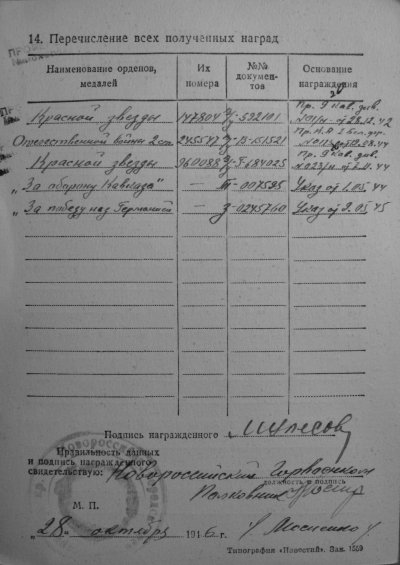 14. Перечисление всех полученных наград
Наименование орденов, медалей
Их номера
№№ документов
Основание награждения
Красной звезды 147804 592101 Пр. 9 Кав. див. 28.12.42
Отечественной войны 2 ст. 245547 В-151521
Красной звезды 960088 684025 Пр. 9 Кав. див. 44
„За оборону Кавказа“ — 007595 Указ от 1.05.44
„За победу над Германией — 0245760 Указ от 9.05.45
Подпись награжденного
Правильность данных
и подпись награжденного
свидетельствую: Новороссийский Горвоенком
должность и подпись
Полковник
М. П.
„28“ октября 1946 г.
Типография «Известий». Зак. 1569